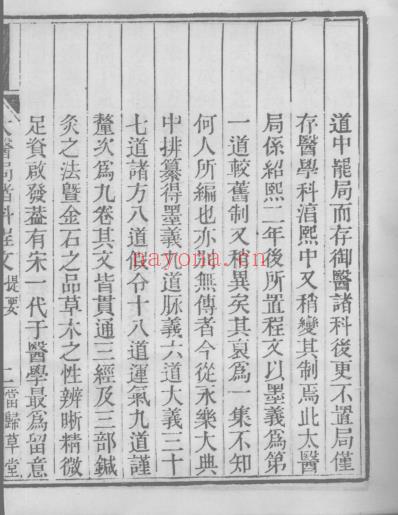 道中罷局而存御醫諸科後更不置局僅
存醫學科淯熙中又稍變其制焉此太醫
局係紹熙二年後所置程文以墨義爲第
一道較舊制又稍異矣其裒爲一集不知
何人所編也亦別無傳者今從永樂大典
中排纂得墨義九道脉義六道大義三十
七道諸方八道假令十八道運氣九道謹
釐次爲九卷其文皆貫通三經及三部鍼
灸之法曁金石之品草木之性辨晣精微
足資啟發葢有宋一代于醫學最爲畱意
太醫局諸科程文 提要 二當歸草堂
nayona.cn